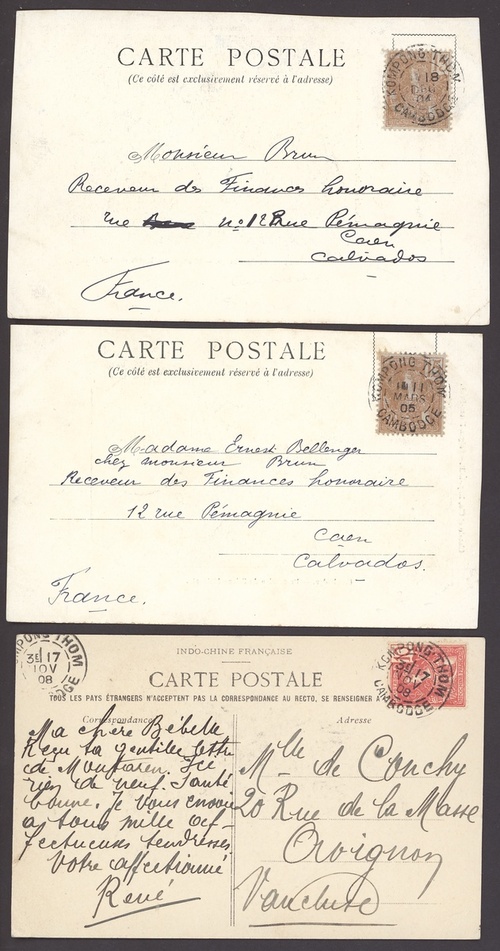 CARTE POSTALE
(Ce côté est exclusivement réservé à l'adresse)
KOMPONG THOM
18
DEC
04
CAMBODGE
Monsieur Brun
Receveur des Finances honoraire
rue n° 12 Rue Pémagnie
Caen
Calvados
France.
CARTE POSTALE
(Ce côté est exclusivement réservé à l'adresse)
KOMPONG THOM
11
MARS
05
CAMBODGE
Madame Ernest Bellenger
chez monsieur Brun
Receveur des Finances honoraire
12 rue Pémagnie
Caen
Calvados.
France.
OMPONG THOM
3E 17
NOV
08
INDO-CHINE FRANÇAISE
CARTE POSTALE
TOUS LES PAYS ÉTRANGERS N'ACCEPTENT PAS LA CORRESPONDANCE AU RECTO, SE RENSEIGNER A
KOMPONG THOM
17
08
CAMBODGE
Correspondance
Ma chère Bébelle
Reçu ta gentille lettre
de Je
rien de neuf. Santé
bonne. Je vous envoie
a tous mille af-
fectueuses tendresses
Votre affectionné
René
Adresse
Mlle de Conchy
20 Rue de la Masse
Avignon
Vaucluse